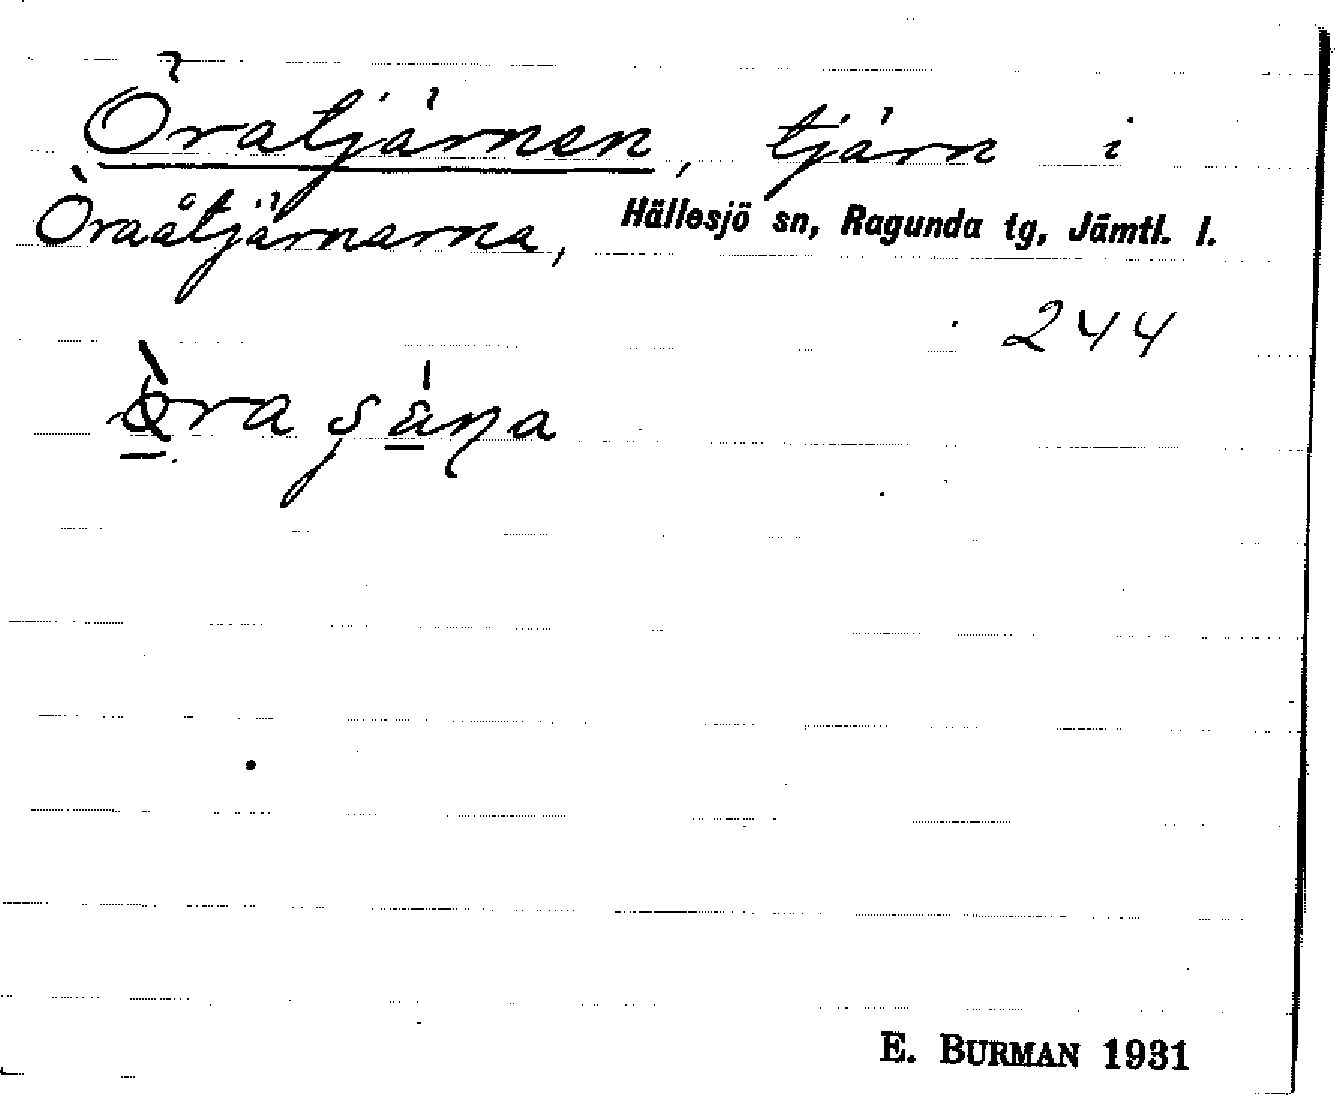 Öratjärnen, tjärn i
Öraåtjärnarna,
Hällesjö sn, Ragunda tg, Jämtl. l.
244
E. BURMAN 1931